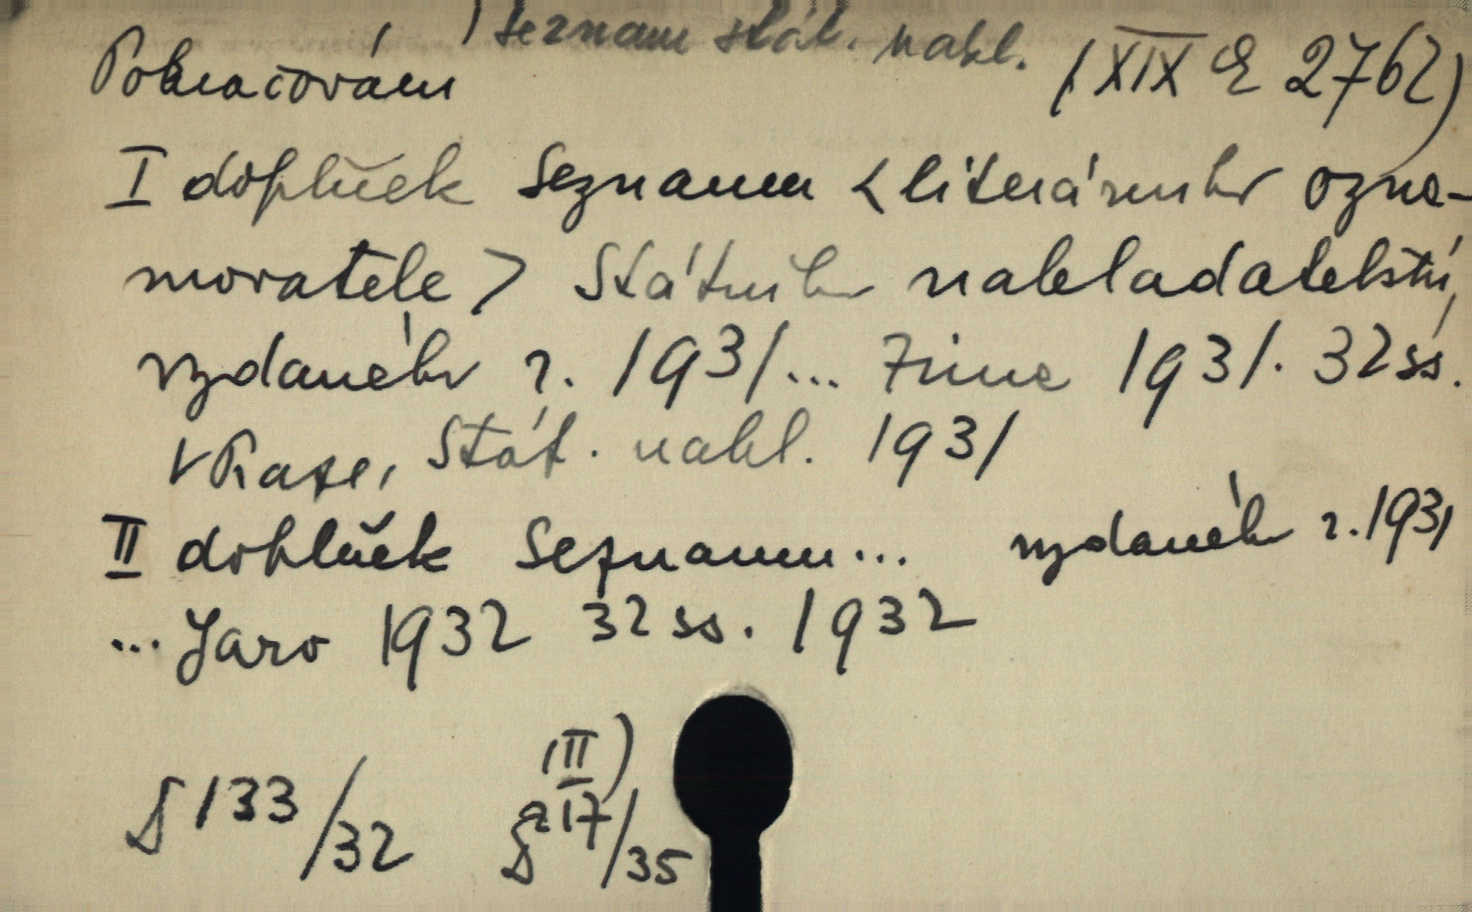 Seznam stát. nakl.
Pokračování (XIX E 2762)
I doplněk Seznamu <literárního ozna-
movatele> Státního nakladatelství,
vydaného r. 1931... Zima 1931. 32 ss.
V Praze, Stát. nakl. 1931
II doplněk Seznamu... vydaného r. 1931
... Jaro 1932 32 ss. 1932
(II)
§ 133/32 § 217/35